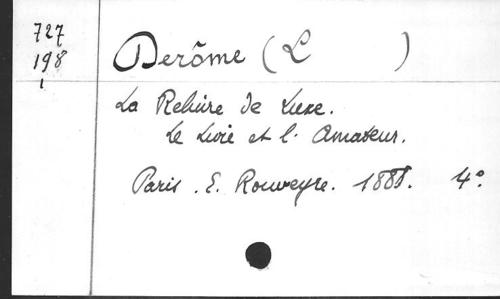 727
198
1
Derôme (L )
La Reliure de Luxe.
Le Livre et l'Amateur.
Paris. E. Rouveyre. 1888. 4°.